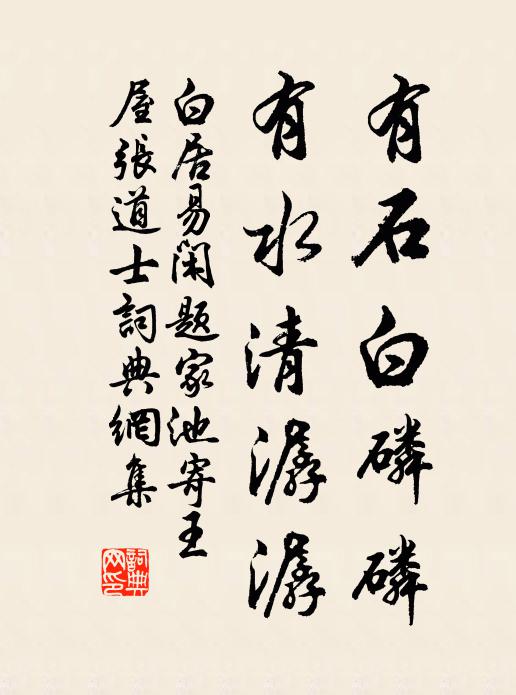 有石白磷磷
有水清潺潺
白居易闲題家池寄王
屋張道士詞典網集
詞典
网印